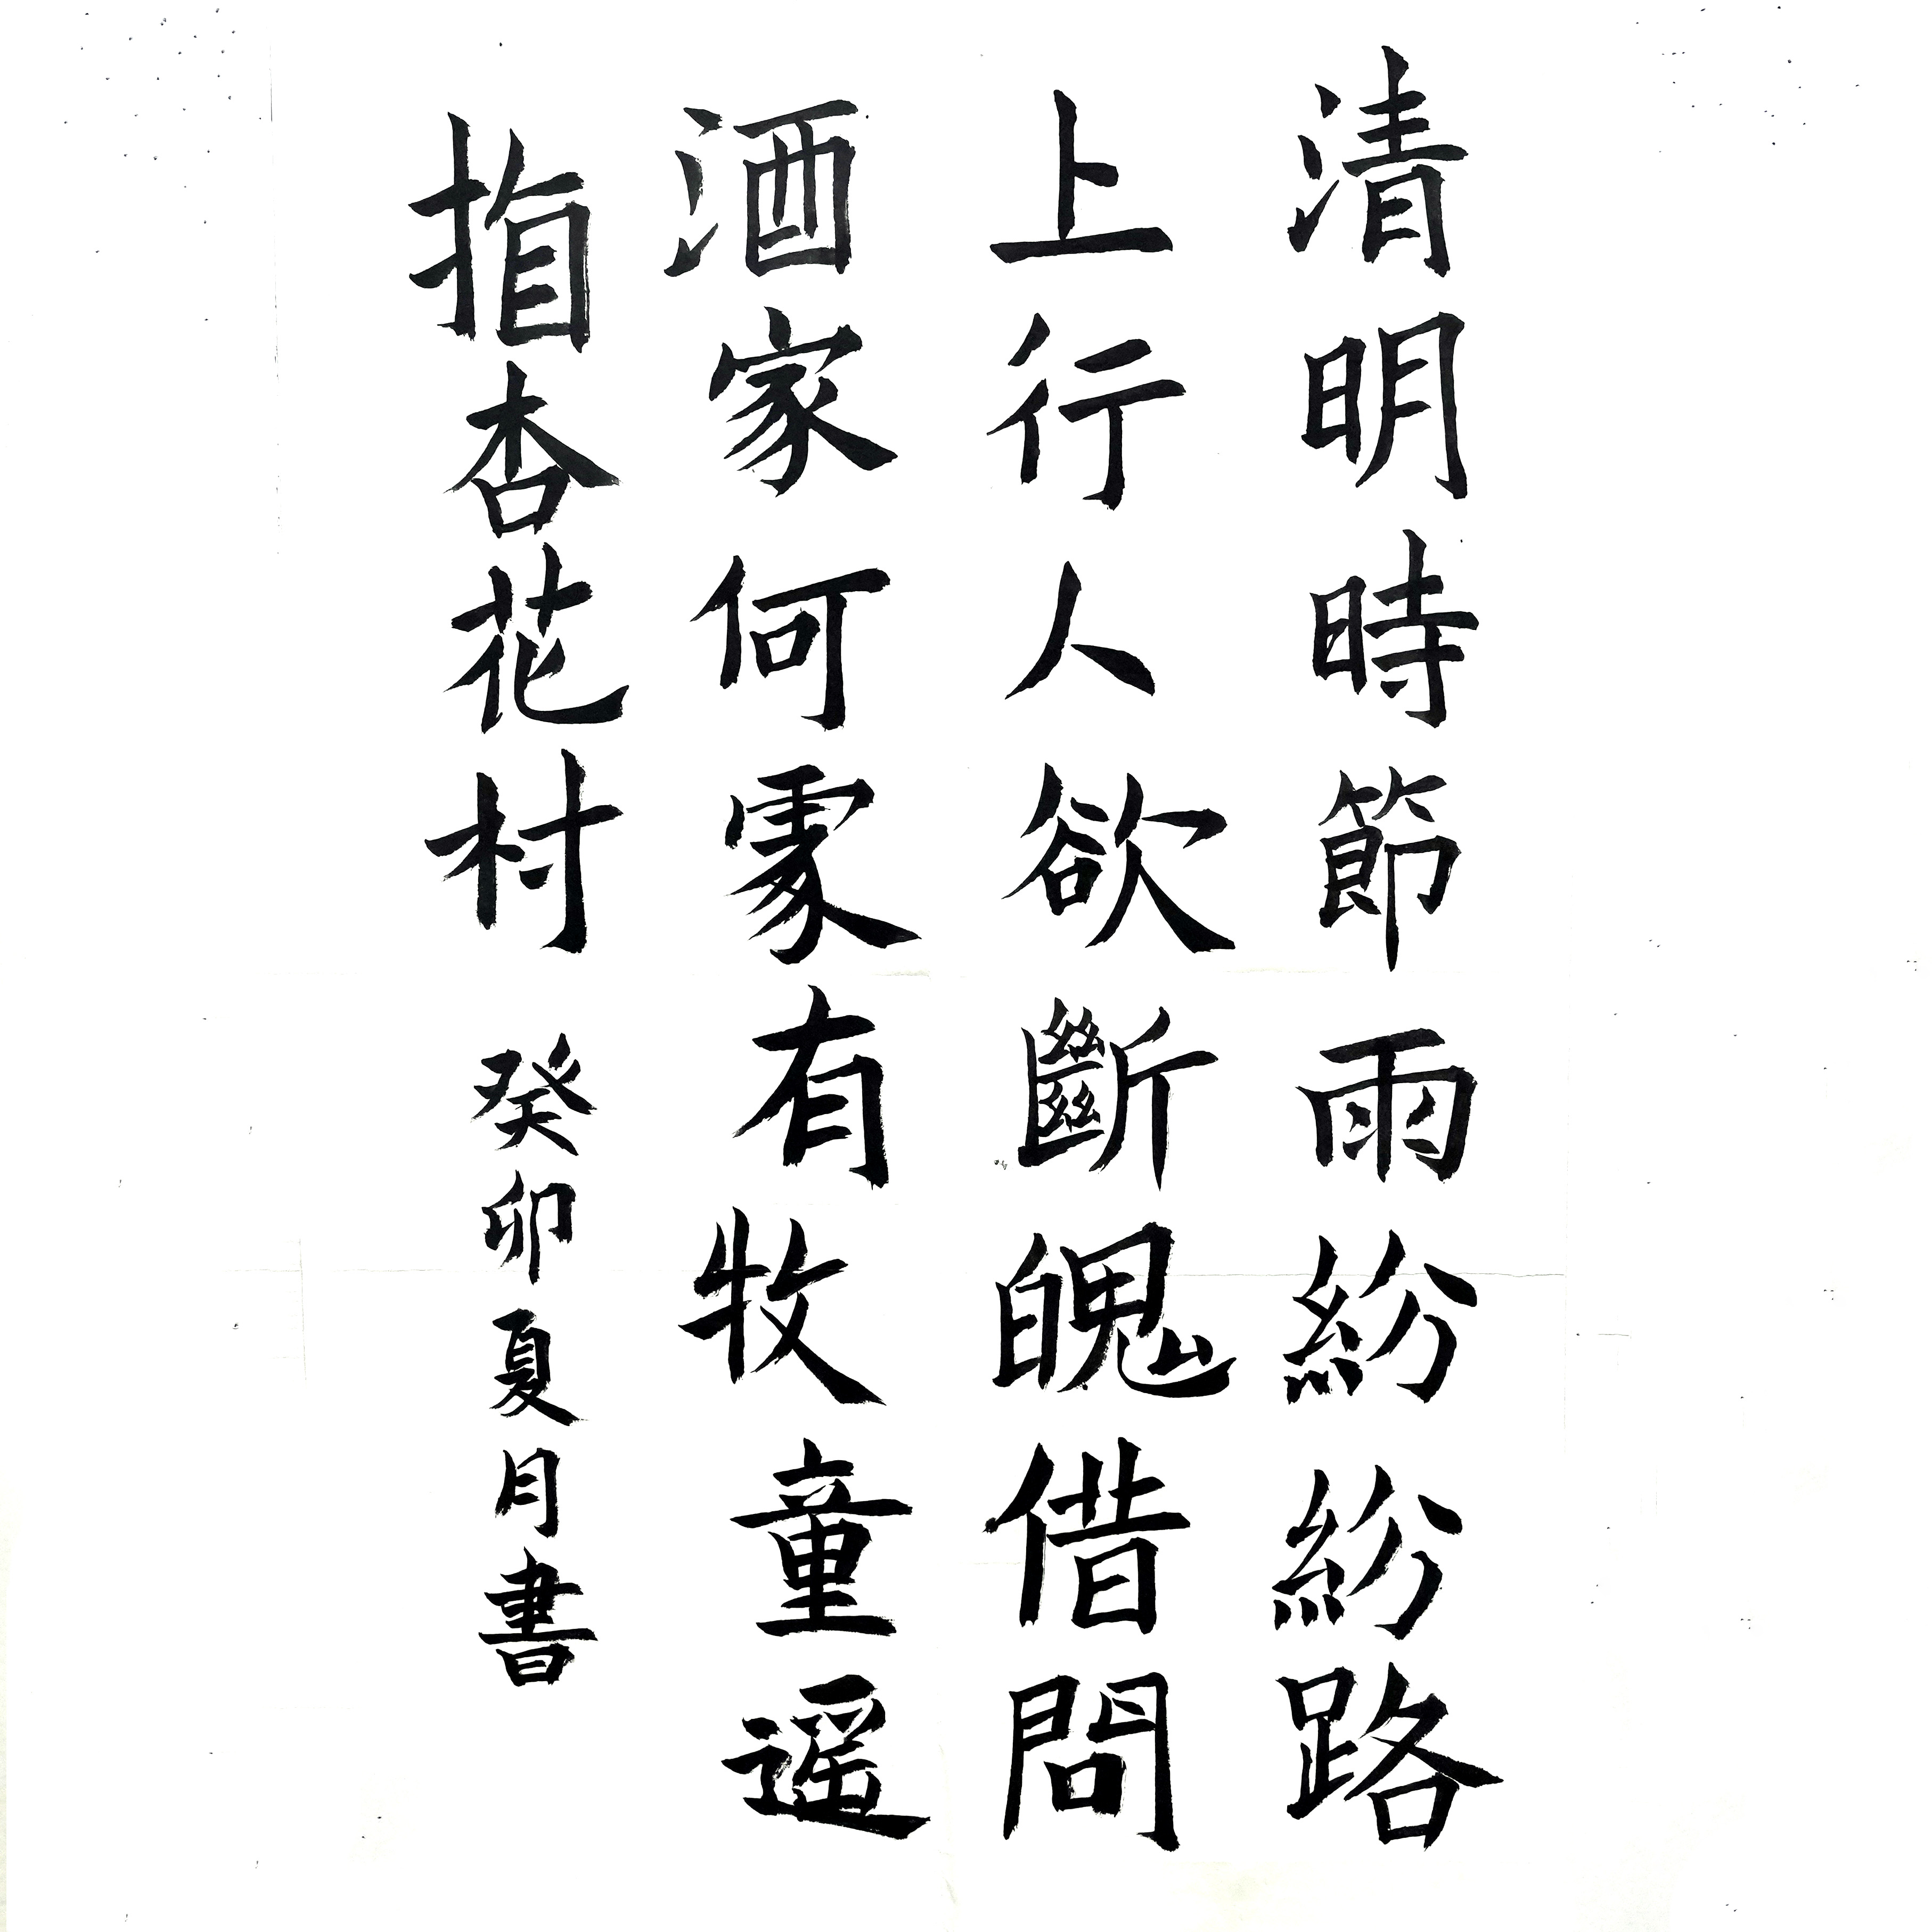 清明時節雨紛紛路
上行人欲斷魂借問
酒家何處有牧童遥
指杏花村 癸卯夏月書